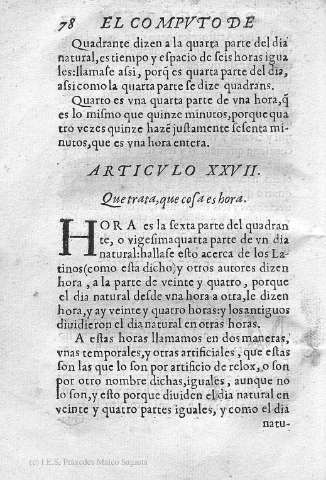 78 EL COMPVTO DE
Quadrante dizen a la quarta parte del dia
natural, es tiempo y espacio de seis horas igua
les: llamase assi, porq̃ es quarta parte del dia,
assi como la quarta parte se dize quadrans.
Quarto es vna quarta parte de vna hora, q̃
es lo mismo que quinze minutos, porque qua
tro vezes quinze hazẽ justamente sesenta mi-
nutos, que es vna hora entera.
ARTICVLO XXVII.
Que trata, que cosa es hora.
HORA es la sexta parte del quadran
te, o vigesimaquarta parte de vn dia
natural: hallase esto acerca de los La-
tinos (como esta dicho) y otros autores dizen
hora, a la parte de veinte y quatro, porque
el dia natural desde vna hora a otra, le dizen
hora, y ay veinte y quatro horas: y los antiguos
diuidieron el dia natural en otras horas.
A estas horas llamamos en dos maneras,
vnas temporales, y otras artificiales, que estas
son las que lo son por artificio de relox, o son
por otro nombre dichas, iguales, aunque no
lo son, y esto porque diuiden el dia natural en
veinte y quatro partes iguales, y como el dia
natu-
(c) I.E.S. Práxedes Mateo Sagasta